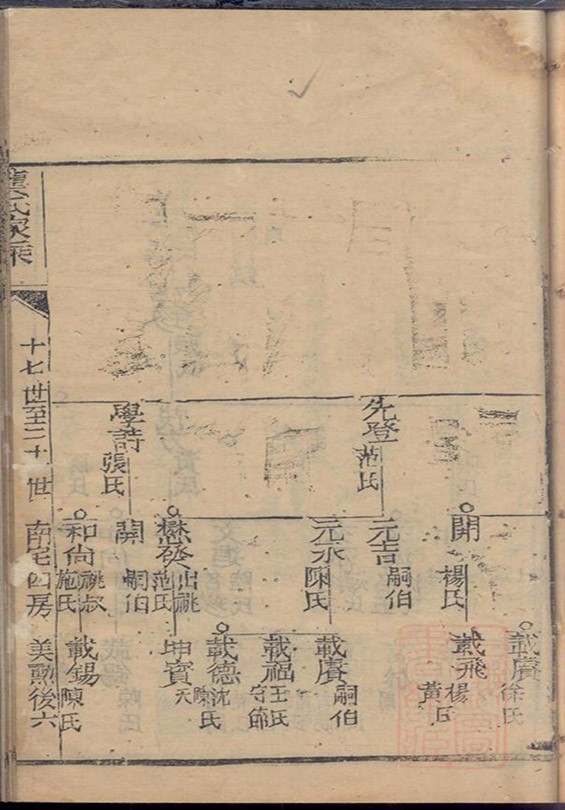 先登 范氏
學詩 張氏
開 楊氏
元吉 嗣伯
元水 陳氏
懋發 出祧 范氏
開 嗣伯
和尚 祧叔 施氏
載賡 徐氏
載飛 楊 黄氏
載賡 嗣伯
載福 王氏 守節
載德 沈氏 陳
坤寶 夭
載錫 陳氏
氏家乘
十七世至二十一世
南宅四房
美勲後六